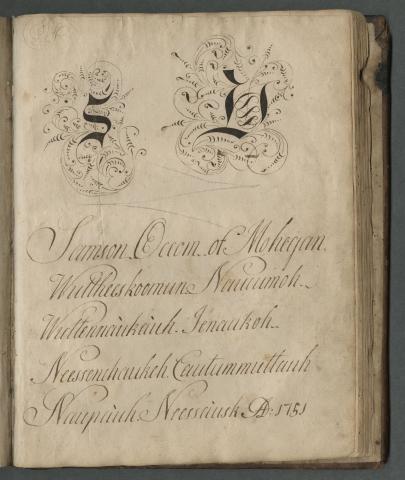 S O
Samson Occom of Mohegan.
Wuttheeskoomun Nauwumoh.
Wuttinnaukauh. Jenaukoh.
Neessonchaukoh. Cautummuttauh
Naupauh. Neessausk. AD: 1751